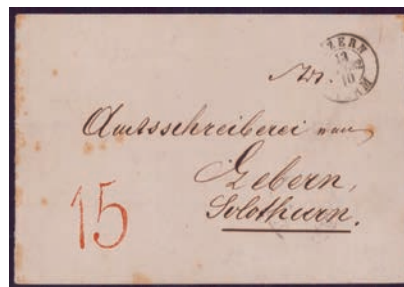 ZERN
13
10
Amtsschreiberei von
Lebern,
Solothurn.
15